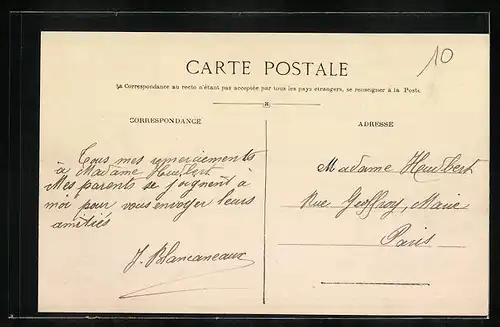 10
CARTE POSTALE
La Correspondance au recto n'étant pas acceptée par tous les pays étrangers, se renseigner à la Poste.
CORRESPONDANCE
ADRESSE
Tous mes remerciements
à Madame Humbert
Mes parents se joignent à
moi pour vous envoyer leurs
amitiés
J. Blancaneaux
Madame Humbert
Rue Geoffroy, Marie
Paris